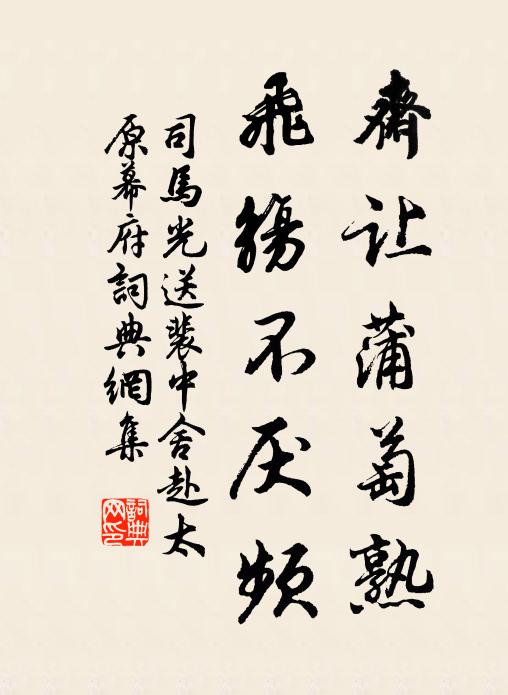 齋让蒲萄熟
飛觴不厌頻
司馬光送裴中舍赴太
原幕府詞典網集
詞典网印